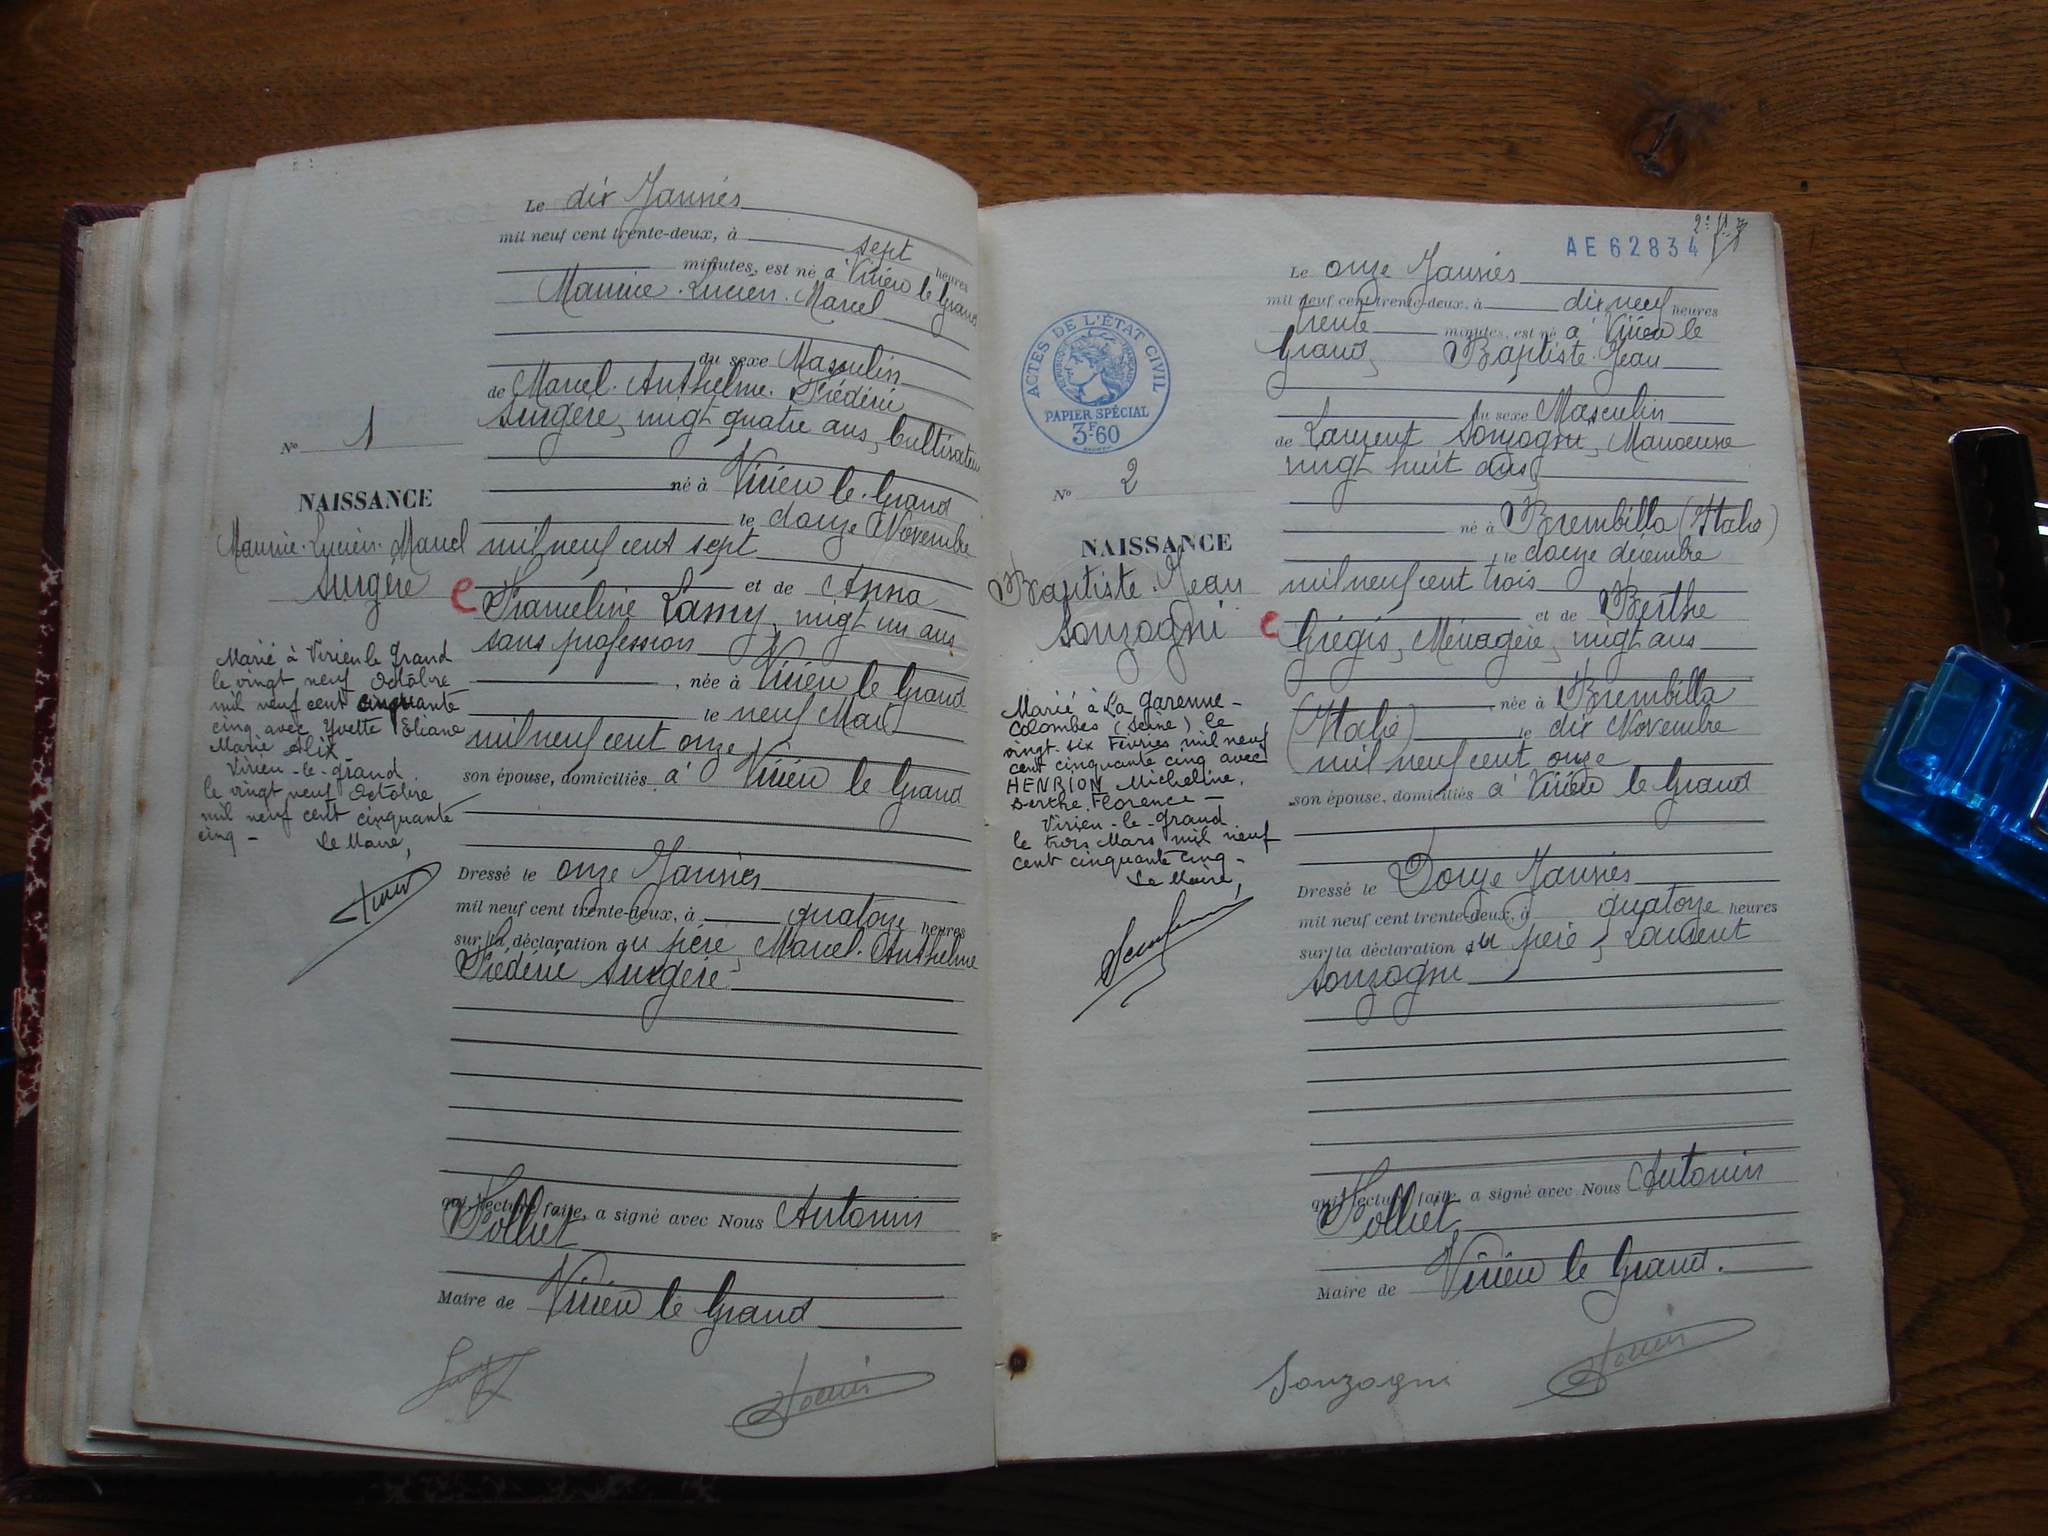 Le dix Janvier
mil neuf cent trente-deux, à sept heures
minutes, est né à Virieu le Grand
Maurice. Lucien. Marcel
du sexe Masculin
de Marcel. Anthelme. Frédéric
Surgère, vingt quatre ans, Cultivateur
né à Virieu le Grand
le douze Novembre
mil neuf cent sept
et de Anna
Franceline Lamy, vingt un ans
sans profession
, née à Virieu le Grand
le neuf Mai
mil neuf cent onze
son épouse, domiciliés à Virieu le Grand
Dressé le onze Janvier
mil neuf cent trente-deux, à quatorze heures
sur la déclaration du père, Marcel. Anthelme
Frédéric Surgère
qui, lecture faite, a signé avec Nous Antonin
Tolliet
Maire de Virieu le Grand
N° 1
NAISSANCE
Maurice. Lucien. Marcel
Surgère
Marié à Virieu le Grand
le vingt neuf Octobre
mil neuf cent cinquante
cinq avec Yvette Eliane
Marie Alix
Virieu-le-Grand
le vingt neuf Octobre
mil neuf cent cinquante
cinq -
Le Maire,
AE62834
Le onze Janvier
mil neuf cent trente-deux, à dix neuf heures
trente minutes, est né à Virieu le
Grand, Baptiste. Jean
du sexe Masculin
de Laurent Sonzogni, Manoeuvre
vingt huit ans,
né à Brembilla (Italie)
le douze décembre
mil neuf cent trois
et de Berthe
Grégis, Ménagère, vingt ans
, née à Brembilla
(Italie) le dix Novembre
mil neuf cent onze
son épouse, domiciliés à Virieu le Grand
Dressé le Douze Janvier
mil neuf cent trente-deux, à quatorze heures
sur la déclaration du père, Laurent
Sonzogni
qui, lecture faite, a signé avec Nous Antonin
Tolliet
Maire de Virieu le Grand.
Sonzogni
ACTES DE L'ÉTAT CIVIL
RÉPUBLIQUE FRANÇAISE
PAPIER SPÉCIAL
3F.60
N° 2
NAISSANCE
Baptiste. Jean
Sonzogni
Marié à La Garenne-
Colombes (Seine) le
vingt-six Février mil neuf
cent cinquante cinq avec
HENRION Micheline,
Berthe, Florence -
Virieu-le-Grand
le trois Mars mil neuf
cent cinquante cinq -
Le Maire,